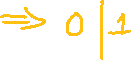 ⇒ 0 | 1